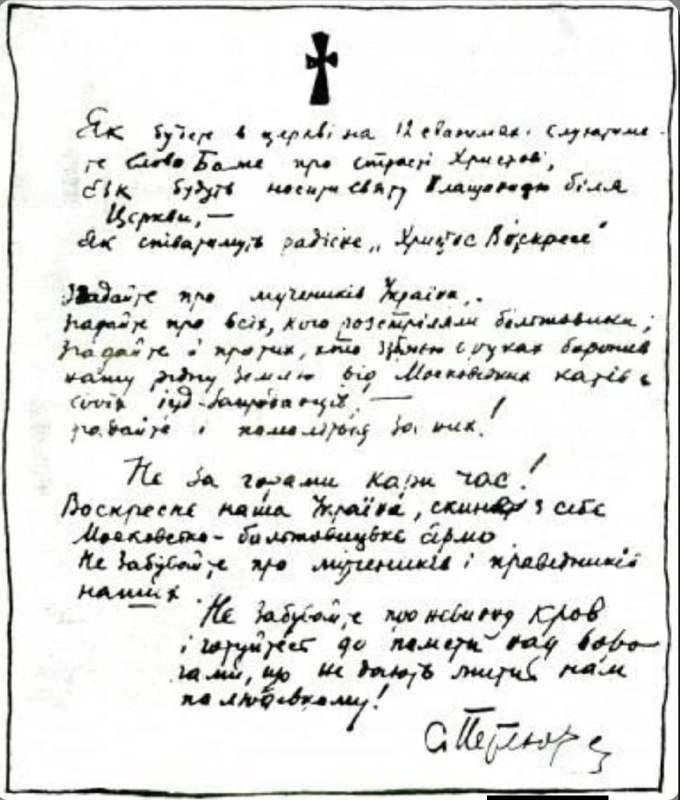 Як будете в церкві на 12 евангиях слухатиме-
те Слово Боже про страсті Христові,
Як будуть носити святу Плащаницю біля
Церкви, —
Як співатимуть радісне „Христос Воскресе"
Згадайте про мучеників України.
Згадайте про всіх, кого розстріляли большовики;
Згадайте і про тих, хто зі зброєю в руках боронив
нашу рідну землю від Московських катів і
своїх іуд-запроданців, —
згадайте і помоліться за них!
Не за горами наш час!
Воскресне наша Україна, скине з себе
Московсько-большовицьке ярмо
Не забувайте про мучеників і праведників
наших.
Не забувайте про невинну кров
і готуйтесь до помсти над воро-
гами, що не дають жити нам
по людському!
С. Петлюра